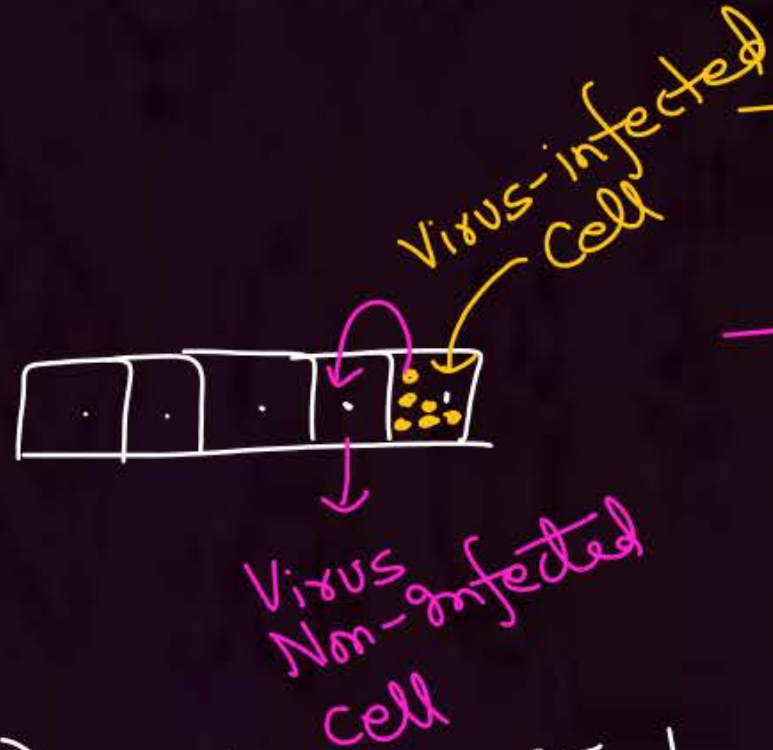 Virus-infected
Cell
Virus
Non-Infected
Cell